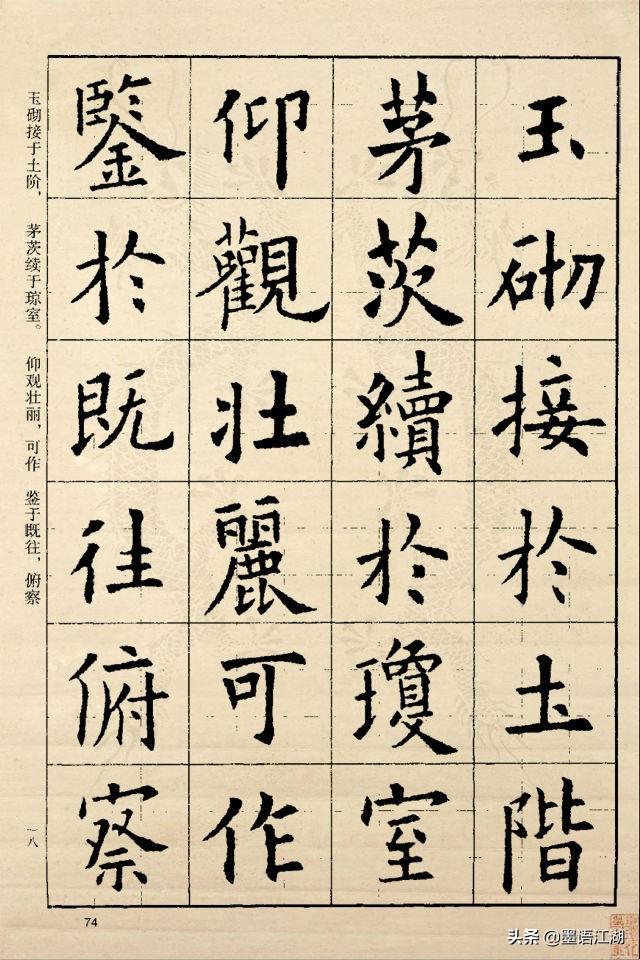 玉砌接於土階
茅茨續於瓊室
仰觀壯麗可作
鑒於既往俯察
玉砌接于土阶，茅茨续于琼室。仰观壮丽，可作鉴于既往，俯察
一八
74
头条 @墨语江湖